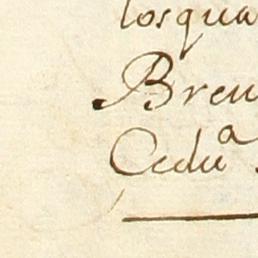 losqua
Breu
Cedu^a